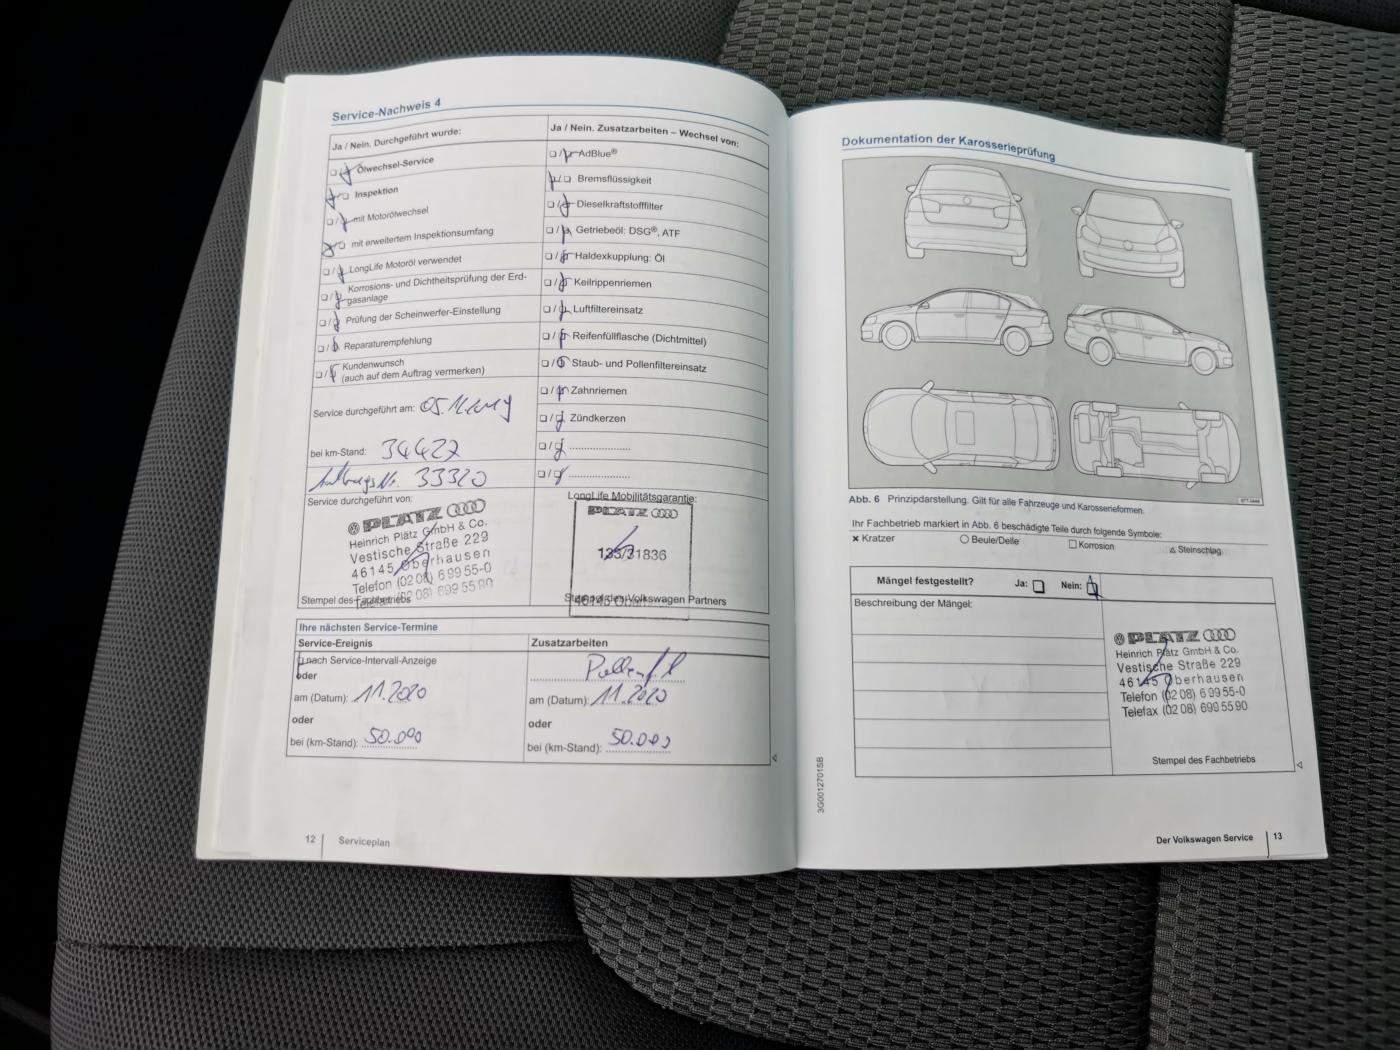 Service-Nachweis 4
Ja / Nein. Durchgeführt wurde:
Ölwechsel-Service
Inspektion
mit Motorölwechsel
mit erweitertem Inspektionsumfang
LongLife Motoröl verwendet
Korrosions- und Dichtheitsprüfung der Erd-
gasanlage
Prüfung der Scheinwerfer-Einstellung
Reparaturempfehlung
Kundenwunsch
(auch auf dem Auftrag vermerken)
Service durchgeführt am: 05.11.2019
bei km-Stand: 34427
Auftrags Nr. 33320
Service durchgeführt von:
PLATZ
Heinrich Platz GmbH & Co.
Vestische Straße 229
46145 Oberhausen
Telefon (02 08) 6 99 55-0
Telefax (02 08) 699 55 90
Stempel des Fachbetriebs
Ja / Nein. Zusatzarbeiten – Wechsel von:
AdBlue®
Bremsflüssigkeit
Dieselkraftstofffilter
Getriebeöl: DSG®, ATF
Haldexkupplung: Öl
Keilrippenriemen
Luftfiltereinsatz
Reifenfüllflasche (Dichtmittel)
Staub- und Pollenfiltereinsatz
Zahnriemen
Zündkerzen
LongLife Mobilitätsgarantie:
PLATZ
/31836
Stempel des Volkswagen Partners
Ihre nächsten Service-Termine
Service-Ereignis
nach Service-Intervall-Anzeige
oder
am (Datum): 11.2020
oder
bei (km-Stand): 50.000
Zusatzarbeiten
am (Datum): 11.2020
oder
bei (km-Stand): 50.000
12 Serviceplan
Dokumentation der Karosserieprüfung
Abb. 6 Prinzipdarstellung. Gilt für alle Fahrzeuge und Karosserieformen.
Ihr Fachbetrieb markiert in Abb. 6 beschädigte Teile durch folgende Symbole:
× Kratzer ○ Beule/Delle □ Korrosion △ Steinschlag
Mängel festgestellt? Ja: Nein:
Beschreibung der Mängel:
PLATZ
Heinrich Platz GmbH & Co.
Vestische Straße 229
46145 Oberhausen
Telefon (02 08) 6 99 55-0
Telefax (02 08) 699 55 90
Stempel des Fachbetriebs
3G0012701SB
Der Volkswagen Service 13